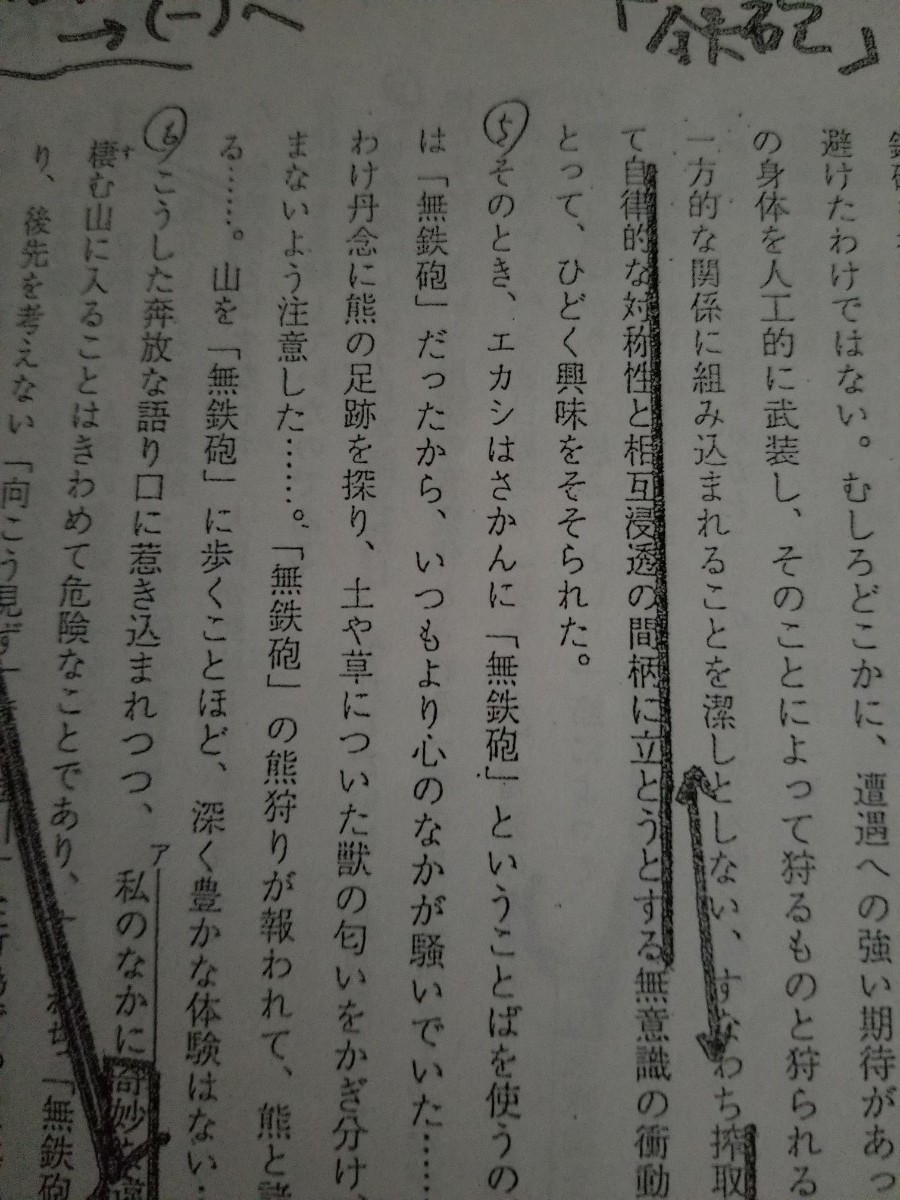 「鉄砲」
→(一)へ
避けたわけではない。むしろどこかに、遭遇への強い期待があっ
の身体を人工的に武装し、そのことによって狩るものと狩られる
一方的な関係に組み込まれることを潔しとしない、すなわち搾取
て自律的な対称性と相互浸透の間柄に立とうとする無意識の衝動
とって、ひどく興味をそそられた。
⑤そのとき、エカシはさかんに「無鉄砲」ということばを使うの
は「無鉄砲」だったから、いつもより心のなかが騒いでいた……
わけ丹念に熊の足跡を探り、土や草についた獣の匂いをかぎ分け、
まないよう注意した……。「無鉄砲」の熊狩りが報われて、熊と
る……。山を「無鉄砲」に歩くことほど、深く豊かな体験はない…
⑥こうした奔放な語り口に惹き込まれつつ、ア私のなかに奇妙な
棲す む山に入ることはきわめて危険なことであり、「無鉄砲
り、後先を考えない「向こう見ず